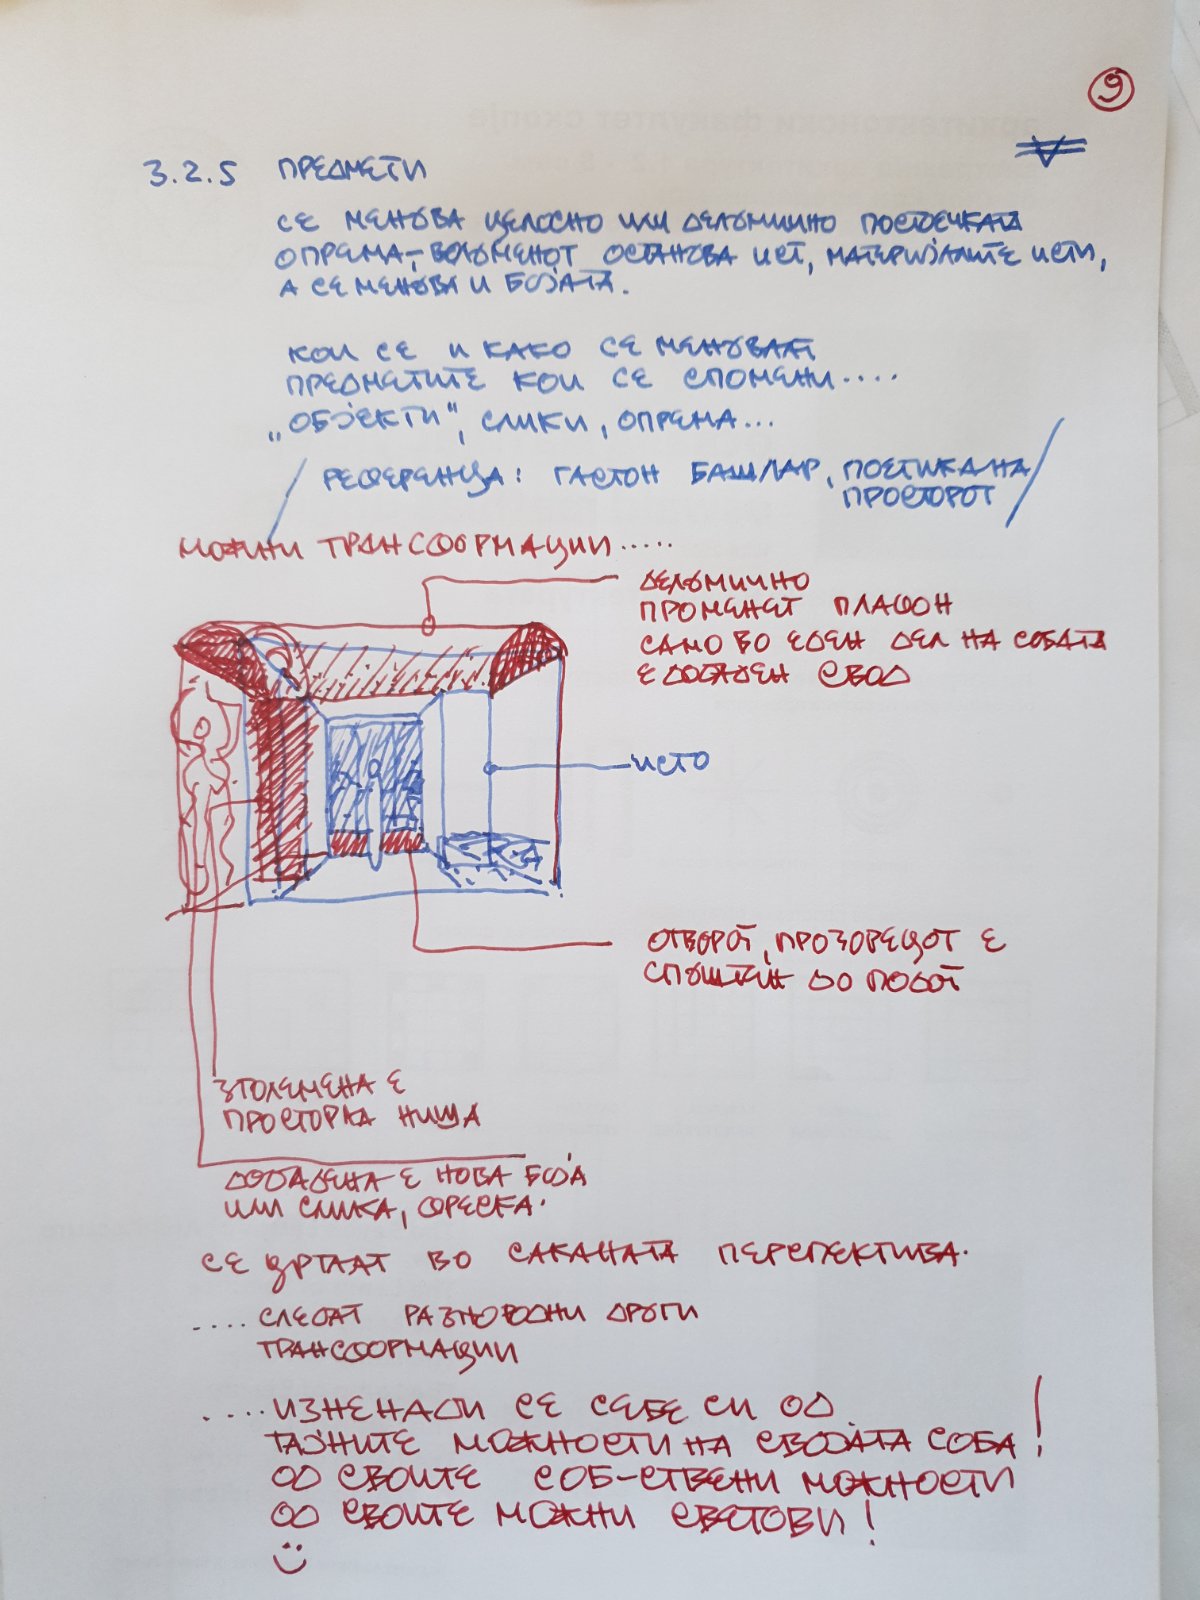 9
3.2.5 ПРЕДМЕТИ
СЕ МЕНУВА ЦЕЛОСНО ИЛИ ДЕЛУМИЧНО ПОСТОЕЧКАТА
ОПРЕМА, – ВОЛУМЕНОТ ОСТАНОВА ИСТ, МАТЕРИЈАЛИТЕ ИСТИ,
А СЕ МЕНУВА И БОЈАТА.
КОИ СЕ И КАКО СЕ МЕНУВААТ
ПРЕДМЕТИТЕ КОИ СЕ СПОМЕНИ....
„ОБЈЕКТИ“, СЛИКИ, ОПРЕМА...
/ РЕФЕРЕНЦА: ГАСТОН БАШЛАР, ПОЕТИКА НА
ПРОСТОРОТ /
МОЖНИ ТРАНСФОРМАЦИИ.....
ДЕЛУМИЧНО
ПРОМЕНЕТ ПЛАФОН
САМО ВО ЕДЕН ДЕЛ НА СОБАТА
Е ДОДАДЕН СВОД
ИСТО
ОТВОРОТ, ПРОЗОРЕЦОТ Е
СПУШТЕН ДО ПОДОТ
ЗГОЛЕМЕНА Е
ПРОСТОРНА НИША
ДОДАДЕНА Е НОВА БОЈА
ИЛИ СЛИКА, ФРЕСКА.
СЕ ЦРТААТ ВО САКАНАТА ПЕРСПЕКТИВА.
.... СЛЕДАТ РАЗНОРОДНИ ДРУГИ
ТРАНСФОРМАЦИИ
.... ИЗНЕНАДИ СЕ СЕБЕ СИ ОД
ТАЈНИТЕ МОЖНОСТИ НА СВОЈАТА СОБА !
ОД СВОИТЕ СОБ-СТВЕНИ МОЖНОСТИ
ОД СВОИТЕ МОЖНИ СВЕТОВИ !